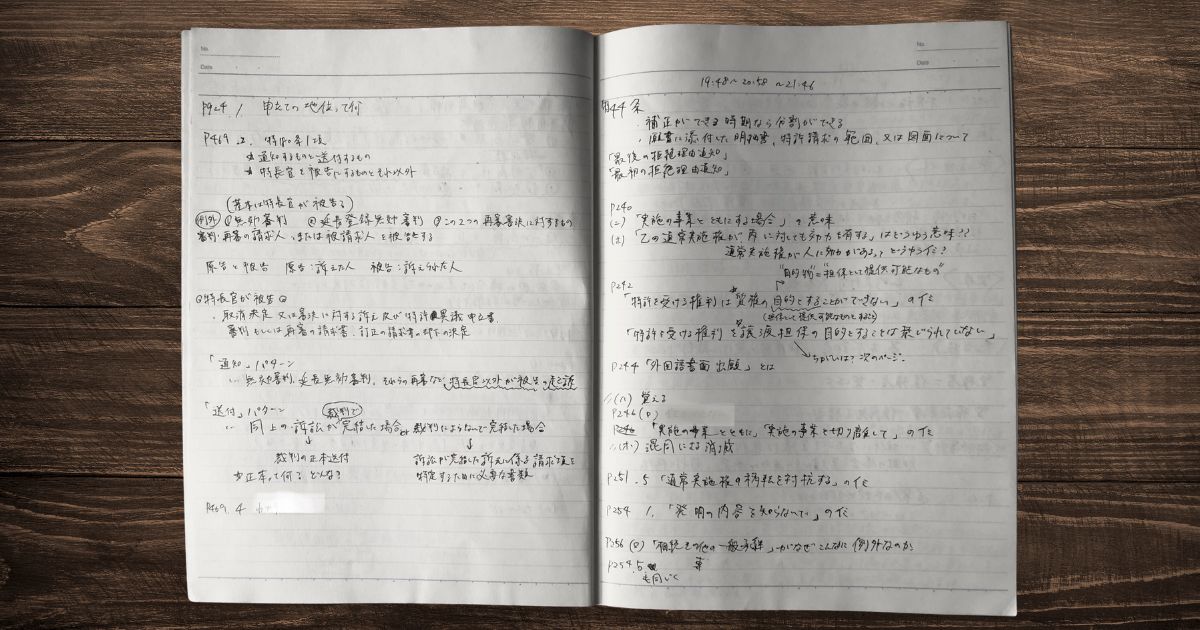 No.
Date
P424.1 申立ての地位って何
P469 .2. 特180条1項
☆通知するものと送付するもの
☆特長官を被告にするものとそれ以外
(基本は特長官が被告る)
例外 ①無効審判 ②延長登録無効審判 ③この2つの再審審決に対するもの
審判・再審の請求人、または被請求人を被告とする
原告と被告 原告:訴えた人 被告:訴えられた人
◎特長官が被告◎
・取消決定又は審決に対する訴え及び特許異議申立書
審判もしくは再審の請求書、訂正の請求書の却下の決定
「通知」パターン
無効審判、延長無効審判、それらの再審など、特長官以外が被告の
「送付」パターン 裁判で
同上の訴訟が完結した場合 裁判によらないで完結した場合
↓ ↓
裁判の正本送付 訴訟が完結した訴えに係る請求項を
☆正本って何?どんな? 特定するために必要な書類
P459.4
No.
Date
19:48~20:58 ~21:46
44条
・補正ができる時期なら分割ができる
・願書に添付した明細書、特許請求の範囲、又は図面について
「最後の拒絶理由通知」
「最初の拒絶理由通知」
P240
(ニ)「実施の事業とともにする場合」の意味
(ハ)「乙の通常実施権が丙に対しても効力を有する」はどうゆう意味??
通常実施権が人に効力がある、とどうゆうイミ?
"目的物"="担保として提供可能なもの"
P242
「特許を受ける権利は質権の目的とすることができない」のイミ
(担保として提供可能なものとすること)
「特許を受ける権利を譲渡担保の目的とすることは禁じられていない」
ちがいは?次のページ。
P244「外国語書面出願」とは
(ハ) 覚える
P246(ロ)
「実施の事業とともに」「実施の事業と切り離して」のイミ
(ホ) 混同による消滅
P251 .5「通常実施権の移転を対抗する」のイミ
P254 1.「発明の内容を知らないで」のイミ
P256 (ロ)「相続その他の一般承継」がなぜこんなに例外なのか
P254.5
も同じく